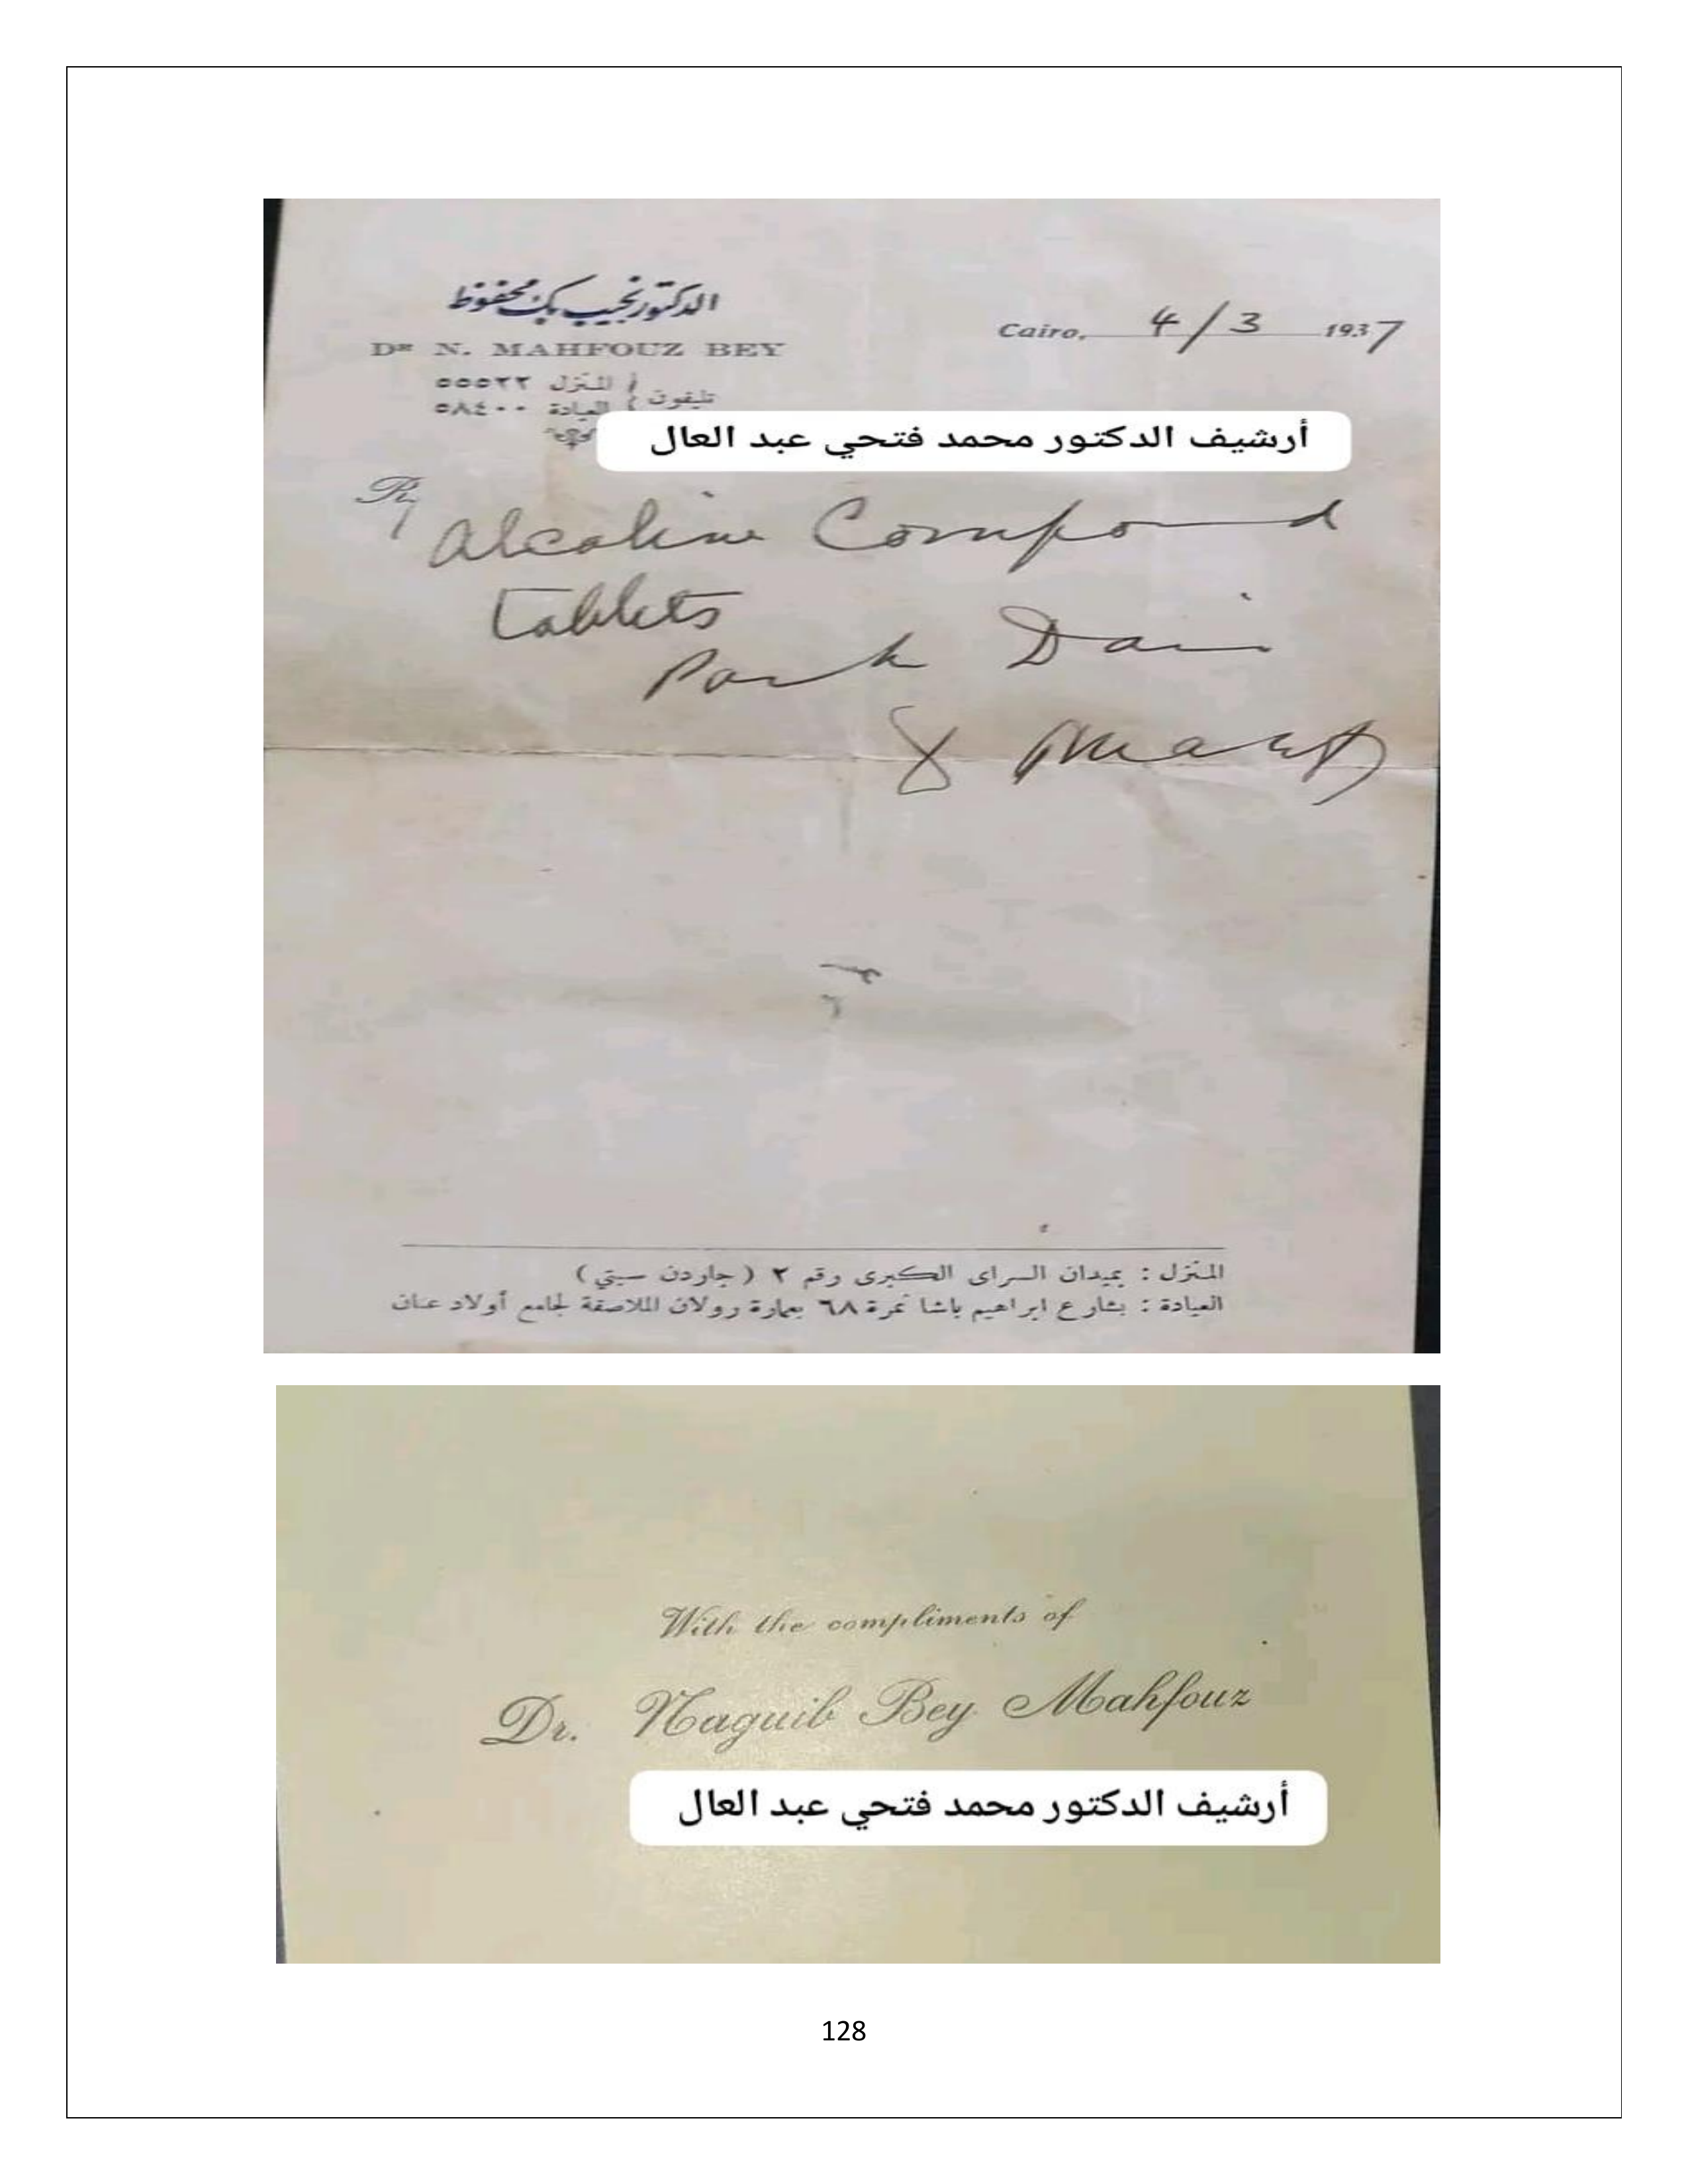 الدكتور نجيب بك محفوظ
Dr N. MAHFOUZ BEY
Cairo, 4/3 1937
تليفون { المنزل ٥٥٥٢٢
العيادة ٥٨٤٠٠
أرشيف الدكتور محمد فتحي عبد العال
Alcaline Compound
Tablets
Park Davi
&
المنزل : بميدان السراى الكبرى رقم ٢ ( جاردن سيتي )
العيادة : بشارع ابراهيم باشا نمرة ٦٨ بعمارة رولان الملاصقة لجامع أولاد عنان
With the compliments of
Dr. Naguib Bey Mahfouz
أرشيف الدكتور محمد فتحي عبد العال
128